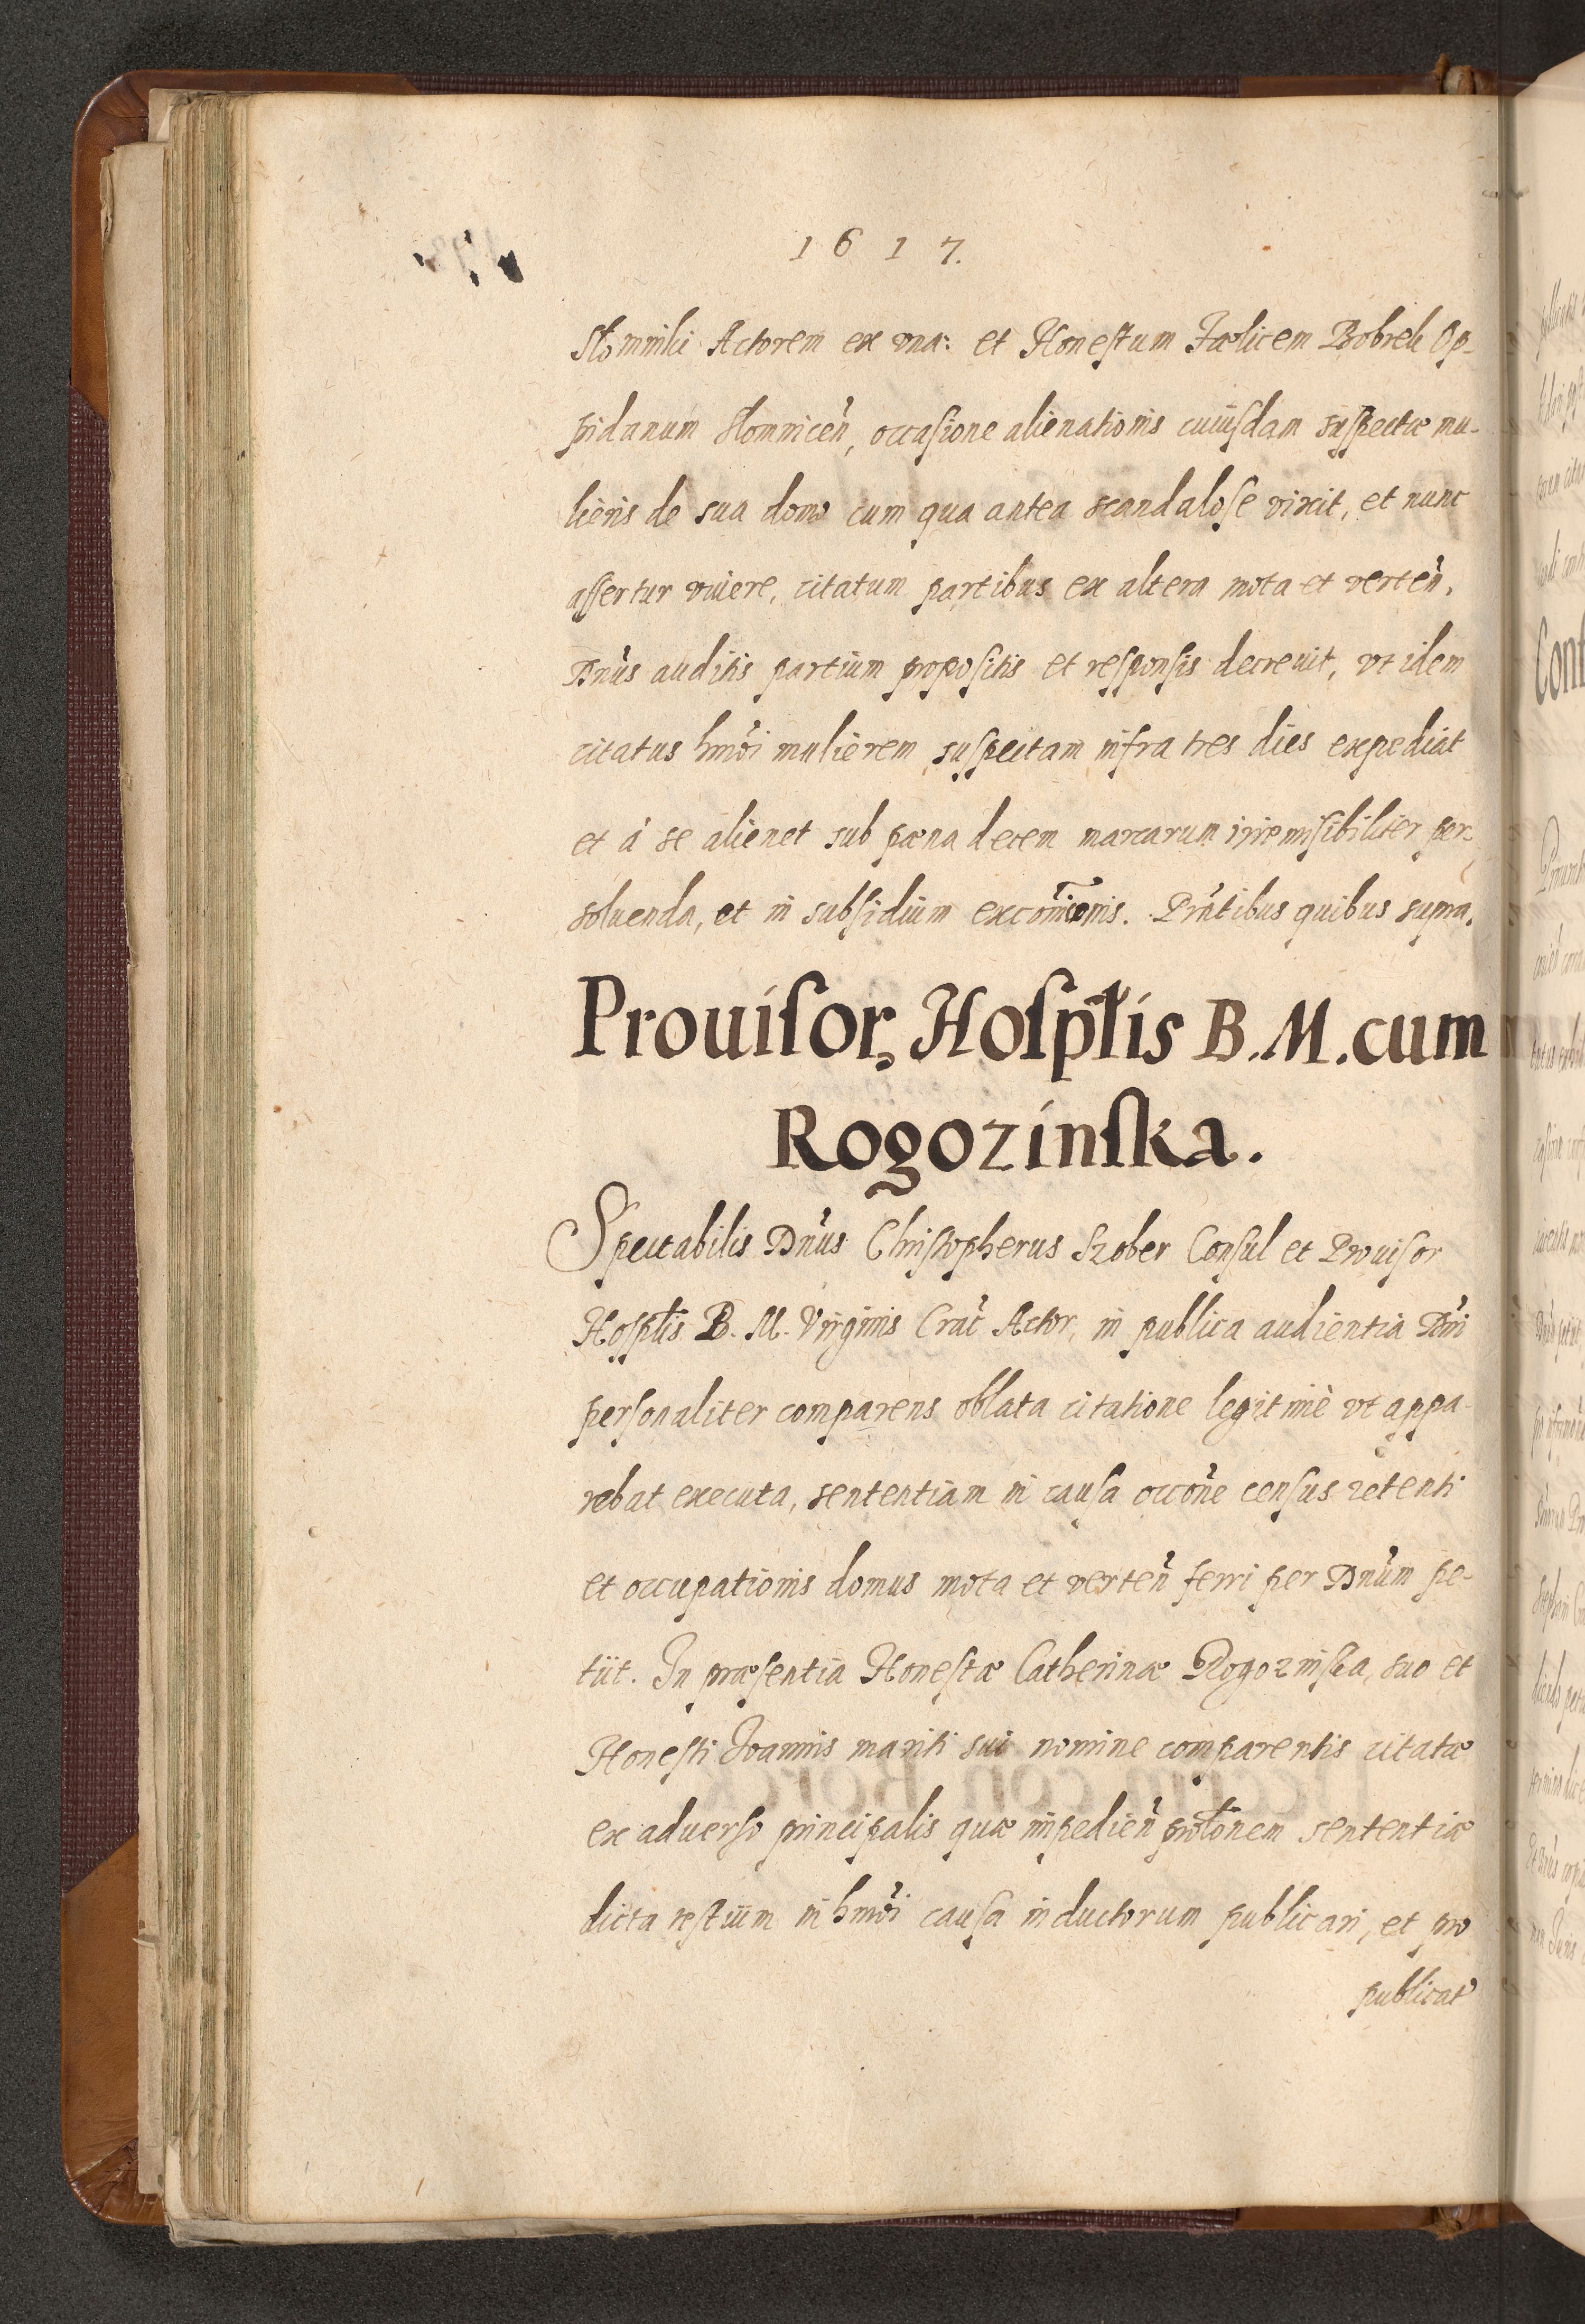 1617.
Słomniki Actorem ex vna: et Honestum Fælicem Bobrek Op-
pidanum Słomnicen̄, occasione alienationis cuiusdam suspectæ mu-
lieris de sua domo cum qua antea scandalose vixit, et nunc
assertur viuere, citatum partibus ex altera mota et verten̄.
Dn̄us auditis partium propositis et responsis decreuit, vt idem
citatus hmōi mulierem suspectam infra tres dies expediat
et à se alienet sub pæna decem marcarum irremisibiliter per-
soluenda, et in subsidium excom̄icōnis. Prn̄tibus quibus supra.
Prouisor, Hosptlis B.M. cum
Rogozinska.
Spectabilis Dn̄us Christopherus Szober Consul et Prouisor
Hosptlis B. M. Virginis Crac̄ Actor, in publica audientia Dn̄i
personaliter comparens oblata citatione legitimè vt appa-
rebat executa, sententiam in causa occōne census retenti
et occupationis domus mota et verten̄ ferri per Dn̄um pe-
tiit. In præsentia Honestæ Catherinæ Rogozinska, suo et
Honesti Joannis mariti sui nomine comparentis citatæ
ex aduerso principalis quæ impedien̄ prołōnem sententiæ
dicta testium in hmōi causa inductorum publicari, et pro
publicat